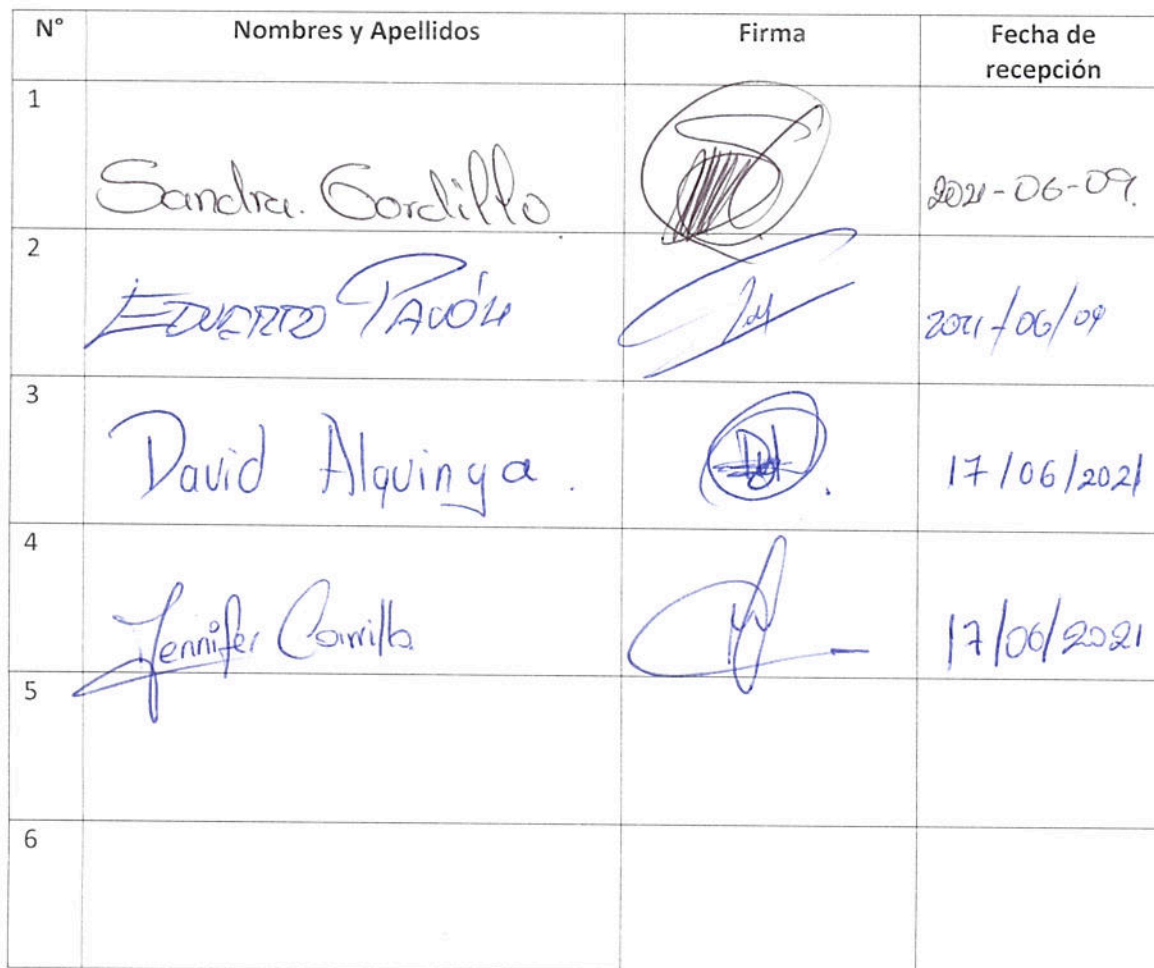 N° Nombres y Apellidos Firma Fecha de recepción
1 Sandra. Gordillo. 2021-06-09.
2 EDUARDO PAVÓN 2021/06/09
3 David Alquinga. 17/06/2021
4 Jennifer Carrillo 17/06/2021
5
6